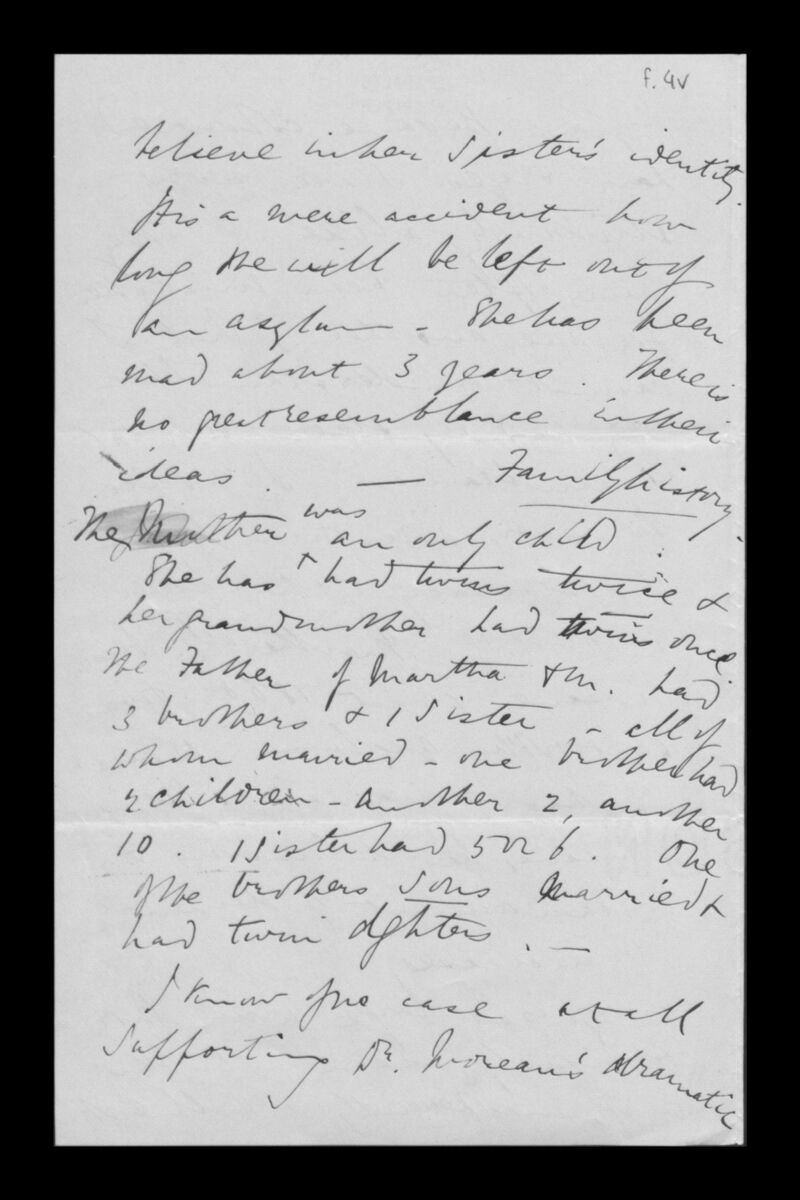 f.4v
believe in her Sister's identity.
It is a mere accident how
long she will be left out of
an asylum - She has been
mad about 3 years. There is
no great resemblance in their
ideas. — Family history.
The Mother was an only child.
She has had twins twice &
her grandmother had twins once.
The Father of Martha & M. had
3 brothers & 1 Sister - all of
whom married - one brother had
2 children - another 2, another
10. 1 Sister had 5 or 6. One
of the brothers Sons married &
had twin dghters. —
I know of no case at all
supporting Dr. Moreau's dramatic